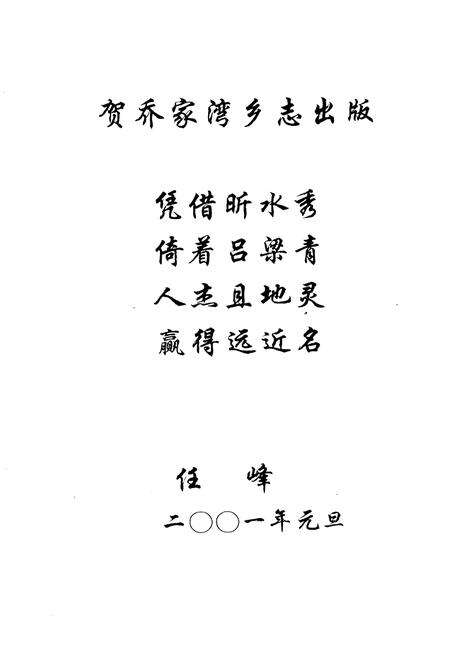 贺乔家湾乡志出版
凭借昕水秀
倚着吕梁青
人杰且地灵
赢得远近名
任 峰
二〇〇一年元旦